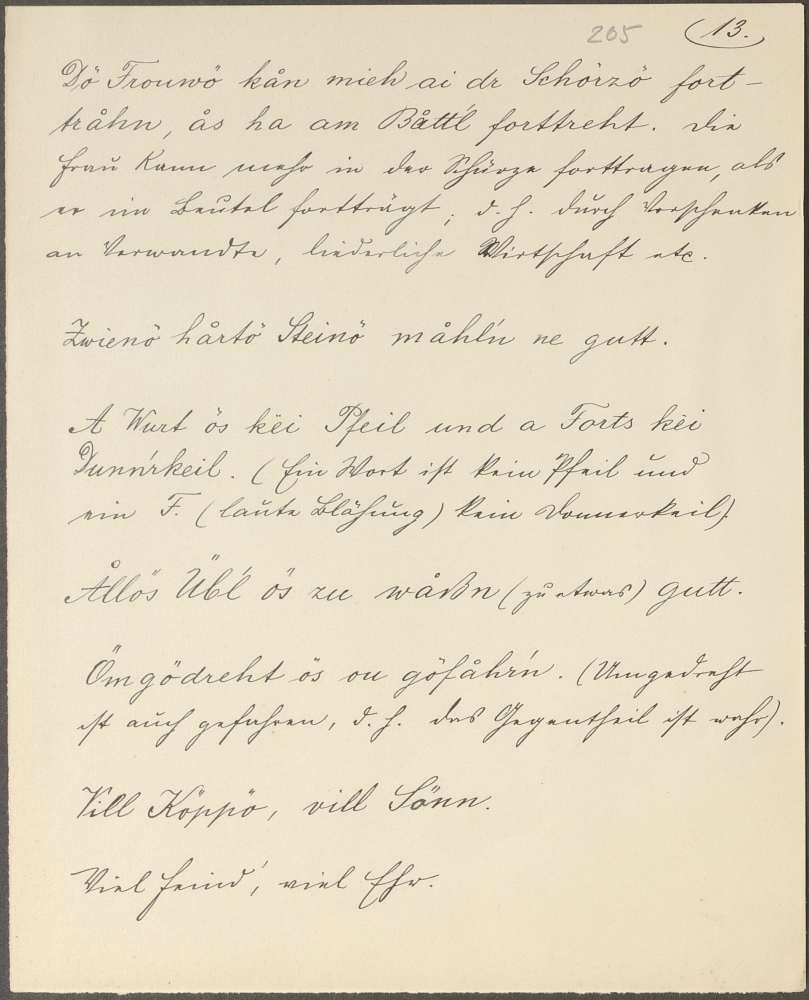 205 (13.)
Dö Frouwö kån mieh ai dr Schörzö fort-
tråhn, ås ha am Båttl forttreht. Die
Frau kann mehr in der Schürze forttragen, als
er im Beutel fortträgt; d. h. durch Verschenken
an Verwandte, liederliche Wirtschaft etc.
Zwienö hårtö Steinö måhl'n ne gutt.
A Wurt ös këi Pfeil und a Forts këi
Dunn'rkeil. (Ein Wort ist kein Pfeil und
ein F. (laute Blähung) kein Donnerkeil).
Ållös Üb'l ös zu wåßn (zu etwas) gutt.
Ömgödreht ös ou göfåhr'n. (Umgedreht
ist auch gefahren, d. h. das Gegentheil ist wahr).
Vill Köppö, vill Sönn.
Viel Feind', viel Ehr.